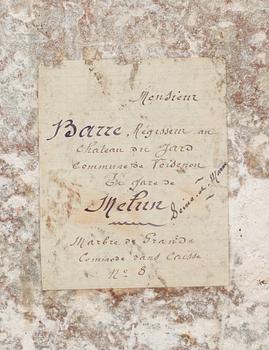 Monsieur
Barre, Régisseur au
Chateau du Jard
Commune de Voisenon
En gare de
Melun Seine-et-Marne
Marbre de Grande
Commode dans Caisse
No 8